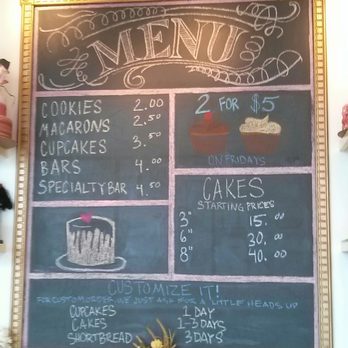 The MENU
COOKIES 2.00
MACARONS 2.50
CUPCAKES 3.50
BARS 4.00
SPECIALTY BAR 4.50
2 FOR $5
ON FRIDAYS
CAKES
STARTING PRICES
3" 15.00
6" 30.00
8" 40.00
CUSTOMIZE IT!
FOR CUSTOM ORDERS, WE JUST ASK FOR A LITTLE HEADS UP
CUPCAKES 1 DAY
CAKES 1-3 DAYS
SHORTBREAD 3 DAYS